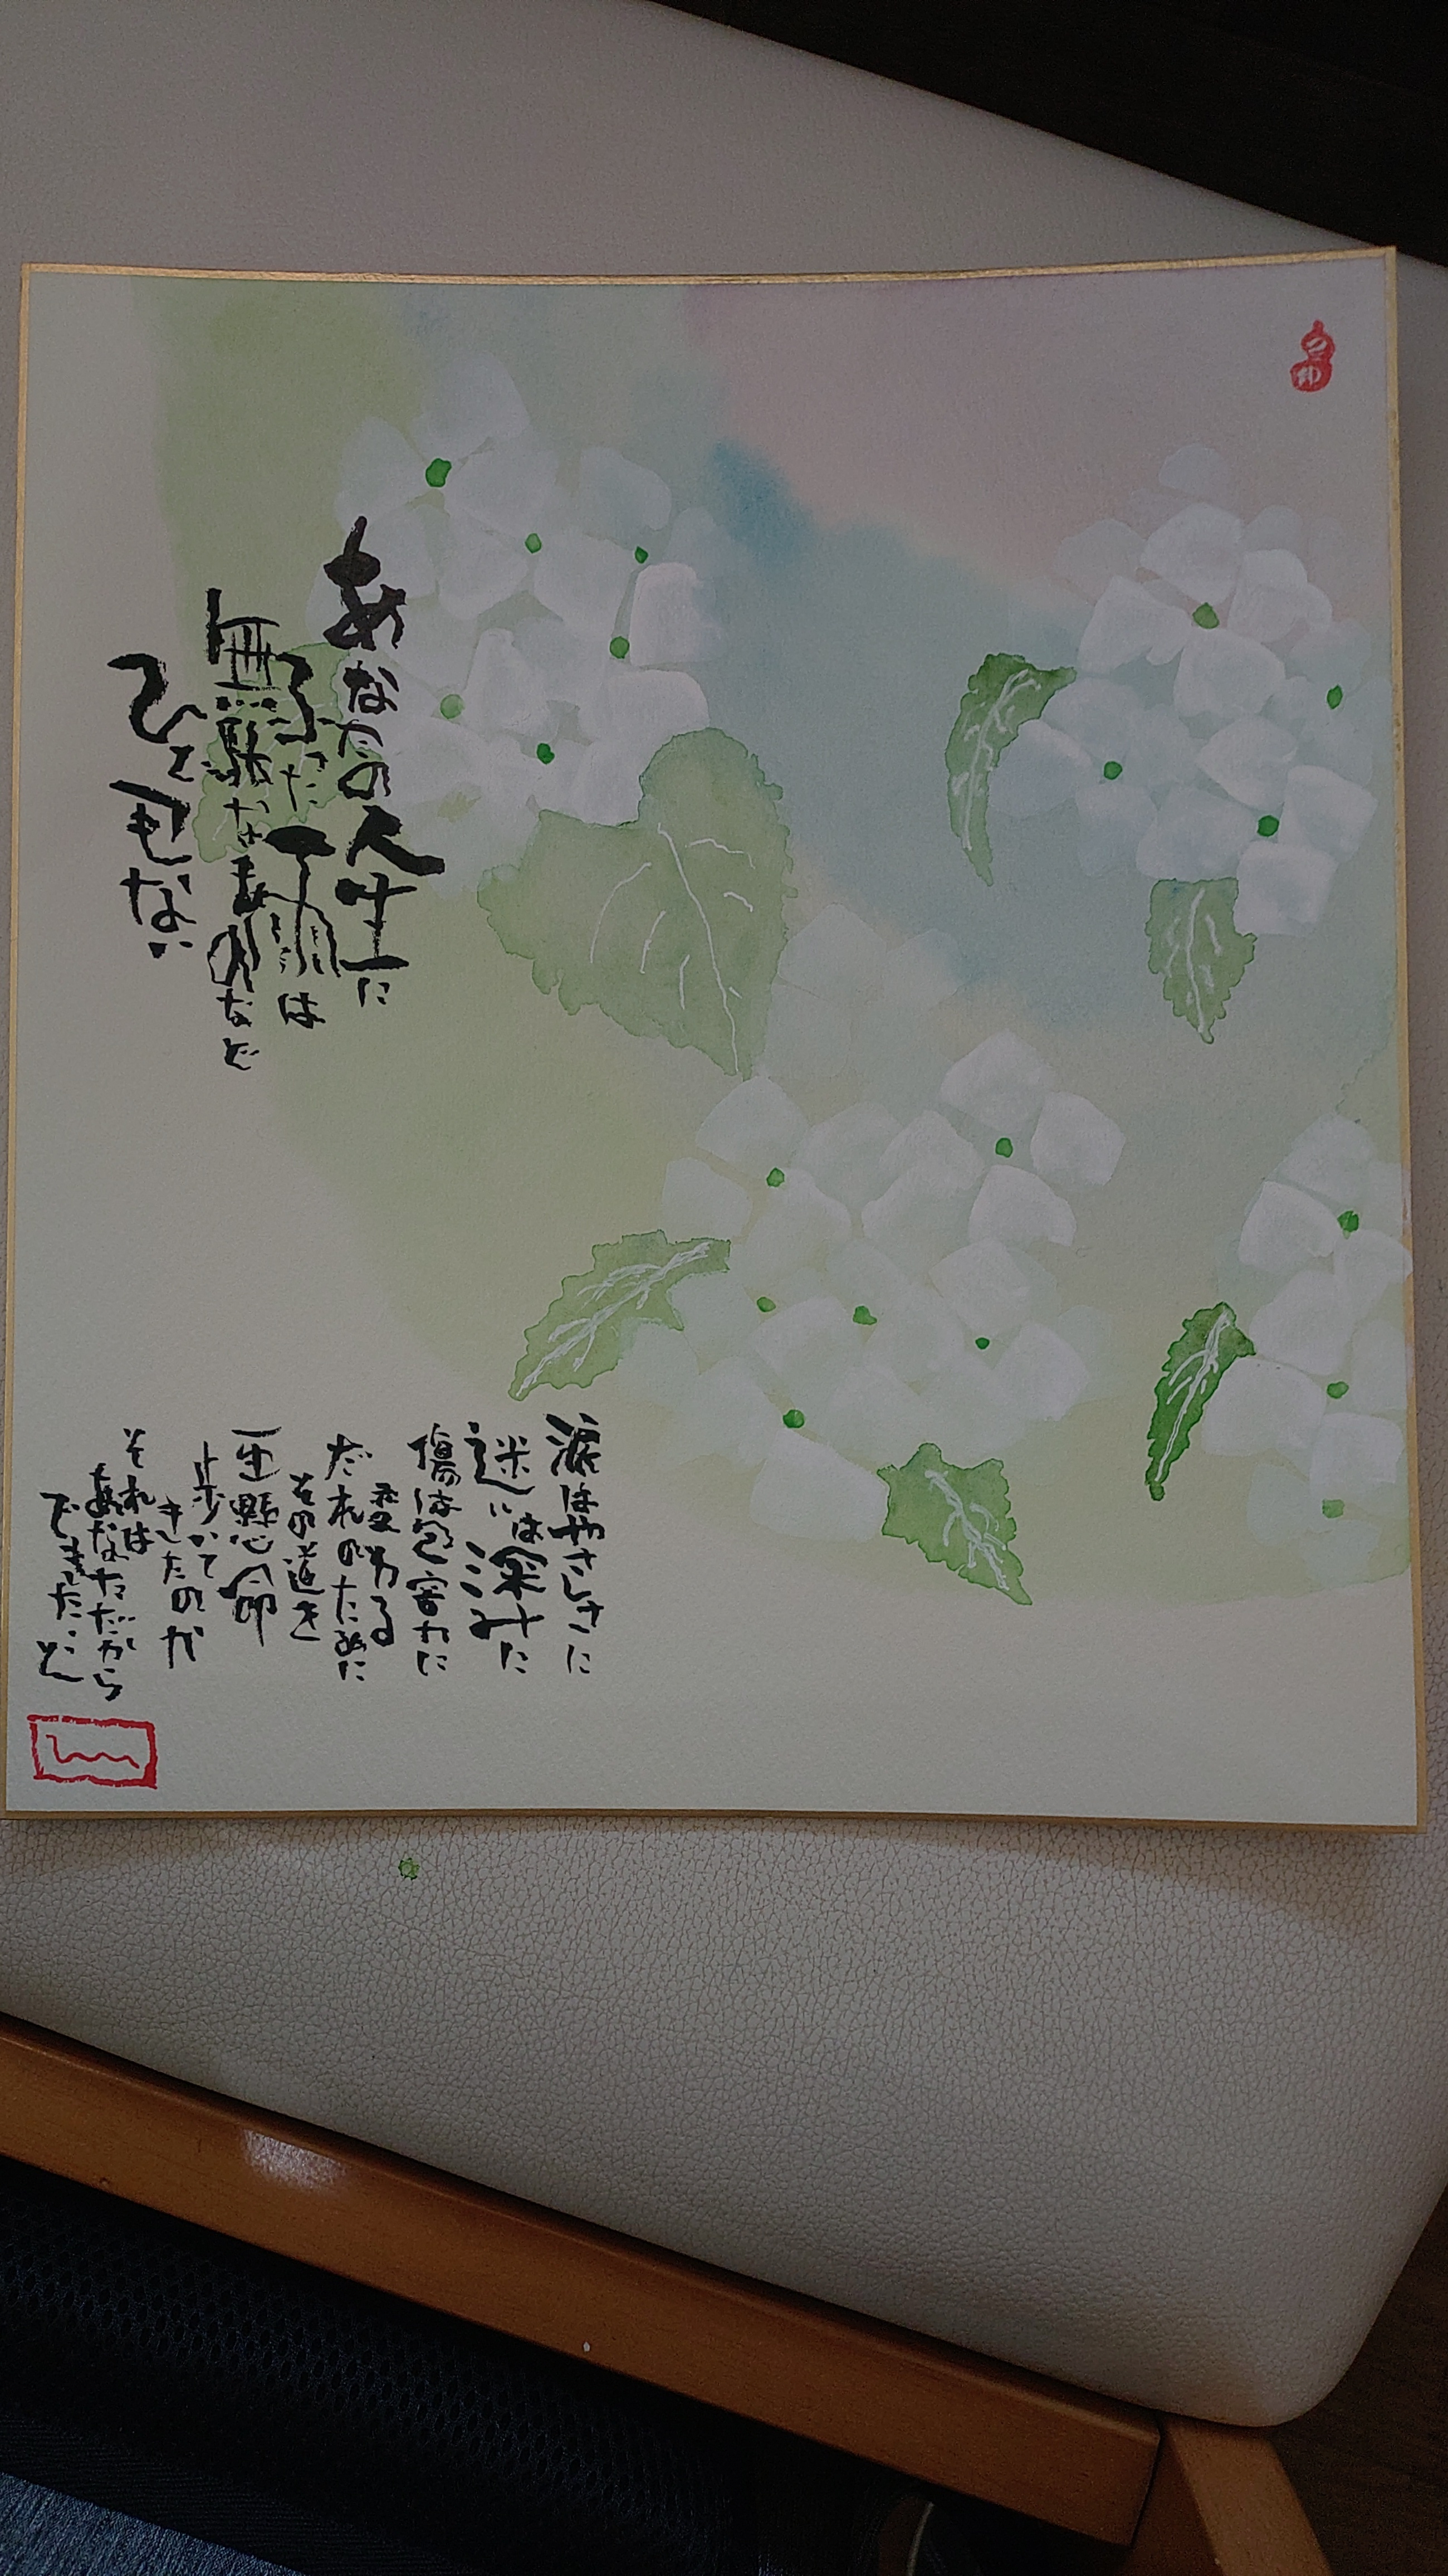 あなたの人生に
ふった雨は
無駄なものなど
ひとつもない
涙はやさしさに
迷いは深みに
傷は包容力に
変わる
だれのために
その道を
一生懸命
歩いて
きたのか
それは
あなただから
できたこと